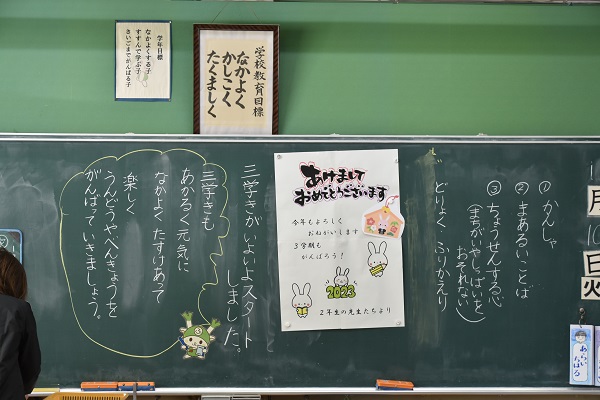 学年目標
なかよくする子
すすんで学ぶ子
さいごまでがんばる子
学校教育目標
なかよく
かしこく
たくましく
月
10
日
火
① かんしゃ
② まあるいことば
③ ちょうせんする心
(まちがいやしっぱいを
おそれない)
どりょく ふりかえり
あけまして
おめでとうございます
今年もよろしく
おねがいします
3学期も
がんばろう!
2023
2年生の先生たちより
三学きがいよいよスタート
しました。
三学きも
あかるく元気に
なかよくたすけあって
楽しく
うんどうやべんきょうを
がんばっていきましょう。